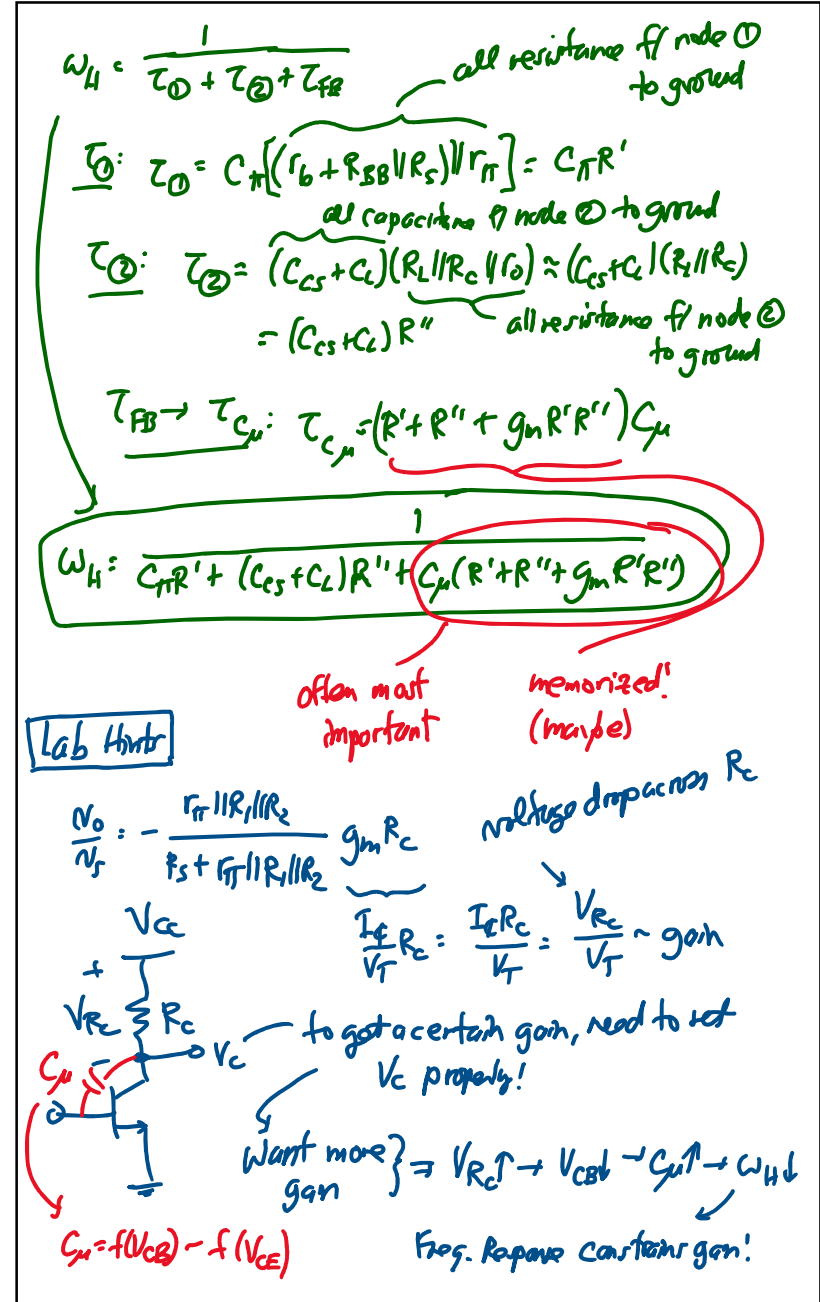 ω_H = 1 / (τ_① + τ_② + τ_FB)
all resistance f/ node ①
to ground
τ_①: τ_① = C_π[(r_b + R_BB||R_S)||r_π] = C_πR'
all capacitance f/ node ② to ground
τ_②: τ_② = (C_cs + C_L)(R_L||R_C||r_o) ≈ (C_cs + C_L)(R_L||R_C)
= (C_cs + C_L)R''
all resistance f/ node ②
to ground
τ_FB → τ_Cμ: τ_Cμ = (R' + R'' + g_m R'R'')C_μ
ω_H = 1 / (C_πR' + (C_cs + C_L)R'' + C_μ(R' + R'' + g_m R'R''))
often most
important
memorized!
(maybe)
Lab Hints
v_o/v_s = - (r_π||R_1||R_2) / (R_S + r_π||R_1||R_2) g_m R_C
voltage drop across R_C
I_C/V_T R_C = I_C R_C/V_T = V_RC/V_T ~ gain
V_CC
+
V_RC R_C
-
V_C
to get a certain gain, need to set
V_C properly!
C_μ
Want more
gain } ⇒ V_RC↑ → V_CB↓ → C_μ↑ → ω_H↓
C_μ = f(V_CB) ~ f(V_CE)
Freq. Response constrains gain!